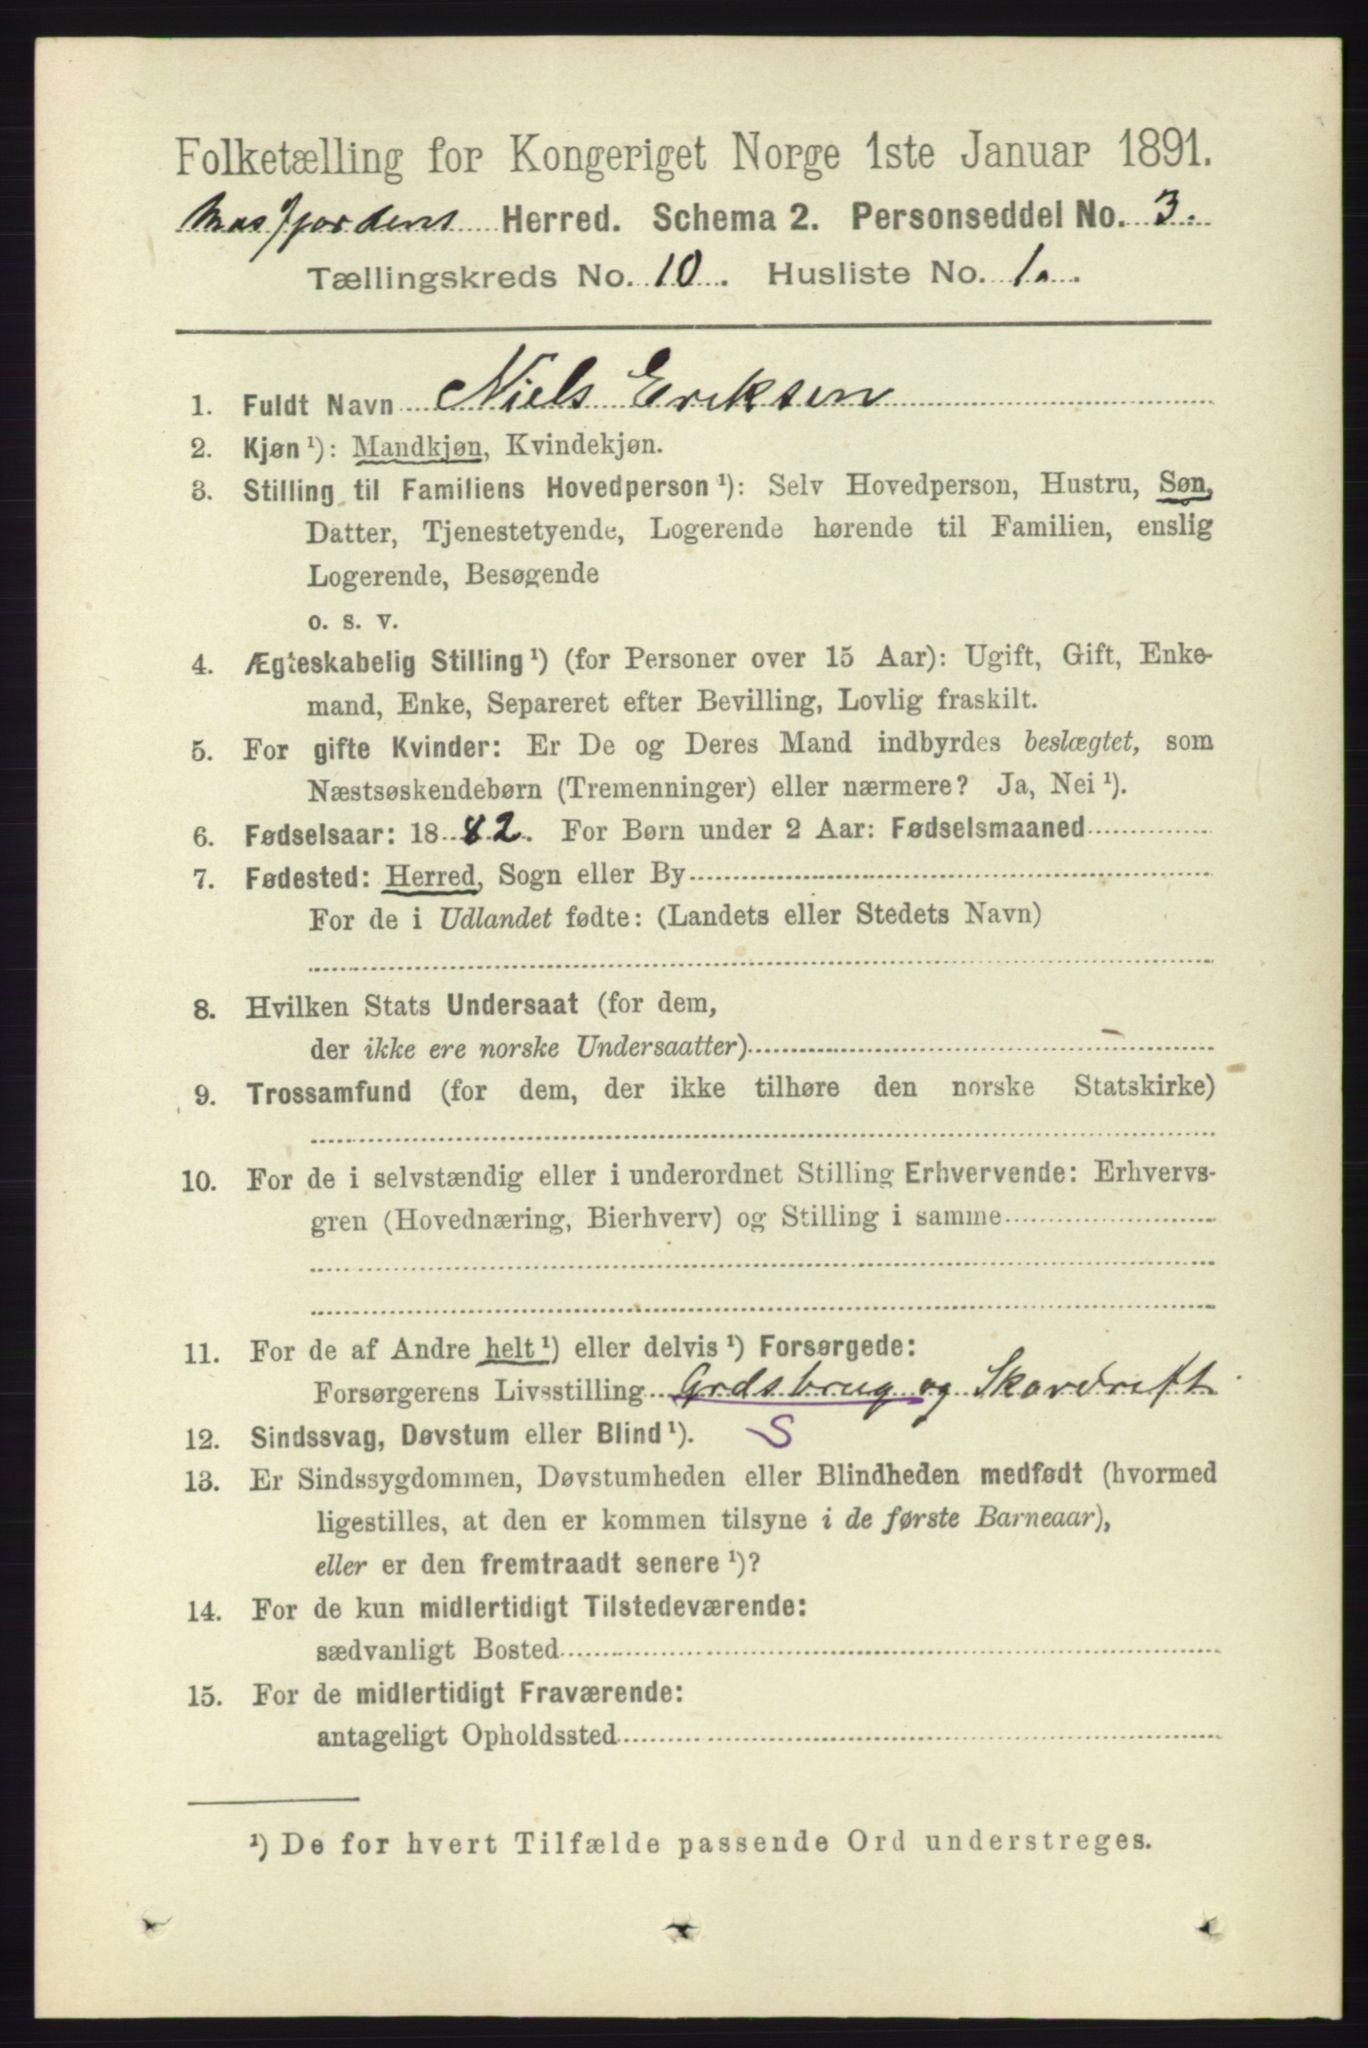 Folketælling for Kongeriget Norge 1ste Januar 1891.
Masfjordens Herred. Schema 2. Personseddel No. 3.
Tællingskreds No. 10. Husliste No. 1.
1. Fuldt Navn Niels Eriksen
2. Kjøn ¹): Mandkjøn, Kvindekjøn.
3. Stilling til Familiens Hovedperson ¹): Selv Hovedperson, Hustru, Søn,
Datter, Tjenestetyende, Logerende hørende til Familien, enslig
Logerende, Besøgende
o. s. v.
4. Ægteskabelig Stilling ¹) (for Personer over 15 Aar): Ugift, Gift, Enke-
mand, Enke, Separeret efter Bevilling, Lovlig fraskilt.
5. For gifte Kvinder: Er De og Deres Mand indbyrdes beslægtet, som
Næstsøskendebørn (Tremenninger) eller nærmere? Ja, Nei ¹).
6. Fødselsaar: 1882. For Børn under 2 Aar: Fødselsmaaned
7. Fødested: Herred, Sogn eller By
For de i Udlandet fødte: (Landets eller Stedets Navn)
8. Hvilken Stats Undersaat (for dem,
der ikke ere norske Undersaatter)
9. Trossamfund (for dem, der ikke tilhøre den norske Statskirke)
10. For de i selvstændig eller i underordnet Stilling Erhvervende: Erhvervs-
gren (Hovednæring, Bierhverv) og Stilling i samme
11. For de af Andre helt ¹) eller delvis ¹) Forsørgede:
Forsørgerens Livsstilling Grdsbrug og Skovdrift
12. Sindssvag, Døvstum eller Blind ¹). S
13. Er Sindssygdommen, Døvstumheden eller Blindheden medfødt (hvormed
ligestilles, at den er kommen tilsyne i de første Barneaar),
eller er den fremtraadt senere ¹)?
14. For de kun midlertidigt Tilstedeværende:
sædvanligt Bosted
15. For de midlertidigt Fraværende:
antageligt Opholdssted
¹) De for hvert Tilfælde passende Ord understreges.